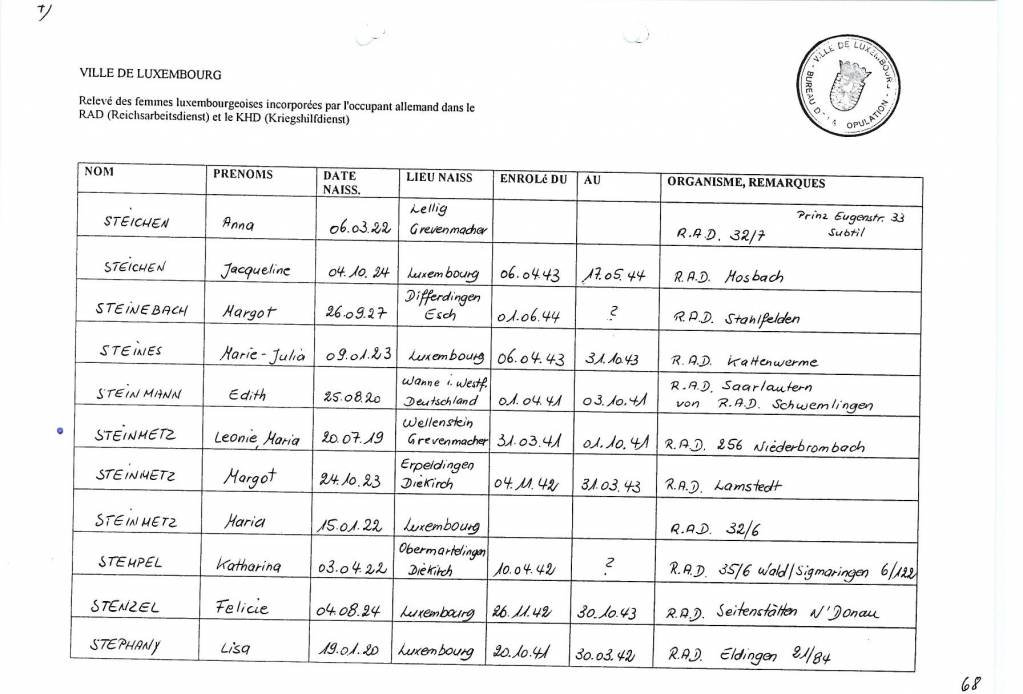 VILLE DE LUXEMBOURG
VILLE DE LUXEMBOURG
BUREAU DE LA POPULATION
Relevé des femmes luxembourgeoises incorporées par l'occupant allemand dans le
RAD (Reichsarbeitsdienst) et le KHD (Kriegshilfdienst)
NOM PRENOMS DATE NAISS. LIEU NAISS ENROLé DU AU ORGANISME, REMARQUES
STEICHEN Anna 06.03.22 Lellig Grevenmacher R.A.D. 32/7 Prinz Eugenstr. 33 Subtil
STEICHEN Jacqueline 04.10.24 Luxembourg 06.04.43 17.05.44 R.A.D. Mosbach
STEINEBACH Margot 26.09.27 Differdingen Esch 01.06.44 ? R.A.D. Stahlfelden
STEINES Marie-Julia 09.01.23 Luxembourg 06.04.43 31.10.43 R.A.D. Kattenwerme
STEINMANN Edith 25.08.20 Wanne i. Westf. Deutschland 01.04.41 03.10.41 R.A.D. Saarlautern von R.A.D. Schwemlingen
STEINMETZ Leonie, Maria 20.07.19 Wellenstein Grevenmacher 31.03.41 01.10.41 R.A.D. 256 Niederbrombach
STEINMETZ Margot 24.10.23 Erpeldingen Diekirch 04.11.42 31.03.43 R.A.D. Lamstedt
STEINMETZ Maria 15.01.22 Luxembourg R.A.D. 32/6
STEMPEL Katharina 03.04.22 Obermartelingen Diekirch 10.04.42 ? R.A.D. 35/6 Wald/Sigmaringen 6/122
STENZEL Felicie 04.08.24 Luxembourg 26.11.42 30.10.43 R.A.D. Seitenstätten N'Donau
STEPHANY Lisa 19.01.20 Luxembourg 20.10.41 30.03.42 R.A.D. Eldingen 21/84
68